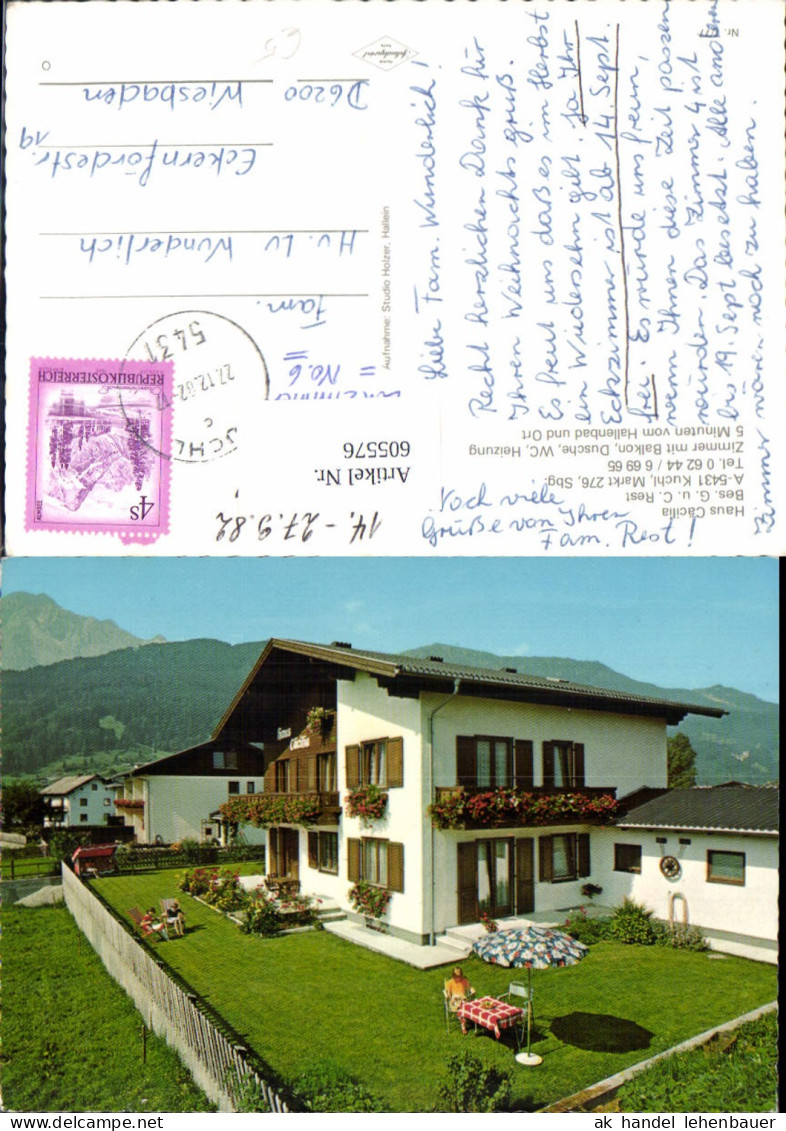 Haus Cäcilia
Bes. G. u. C. Rest
A-5431 Kuchl, Markt 276, Sbg.
Tel. 0 62 44 / 6 69 65
Zimmer mit Balkon, Dusche, WC, Heizung
5 Minuten vom Hallenbad und Ort
Liebe Fam. Wunderlich!
Recht herzlichen Dank für
Ihren Weihnachtsgruß.
Es freut uns daß es im Herbst
ein Wiedersehn gibt. Ja Ihr
Eckzimmer ist ab 14. Sept.
frei. Es würde uns freun,
wenn Ihnen diese Zeit passen
würden. Das Zimmer 4 ist
bis 19. Sept besetzt. Alle anderen
Zimmer wären noch zu haben.
Noch viele
Grüße von Ihrer
Fam. Rest!
Aufnahme: Studio Holzer, Hallein
REPUBLIK ÖSTERREICH
ALMSEE
4S
5431
27.12.82-17
c
= No. 6 =
Fam.
H. u. Lv Wunderlich
Eckernfördestr.
19
D6200 Wiesbaden
14. - 27.9.82
Artikel Nr.
605576
Haus
ak handel lehenbauer